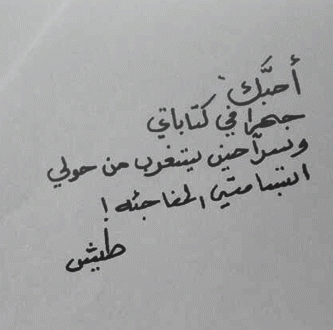 أحبَّك
جهرا في كتاباتي
وسرّا حين يستغرب من حولي
ابتسامتي المفاجئه !
طيش